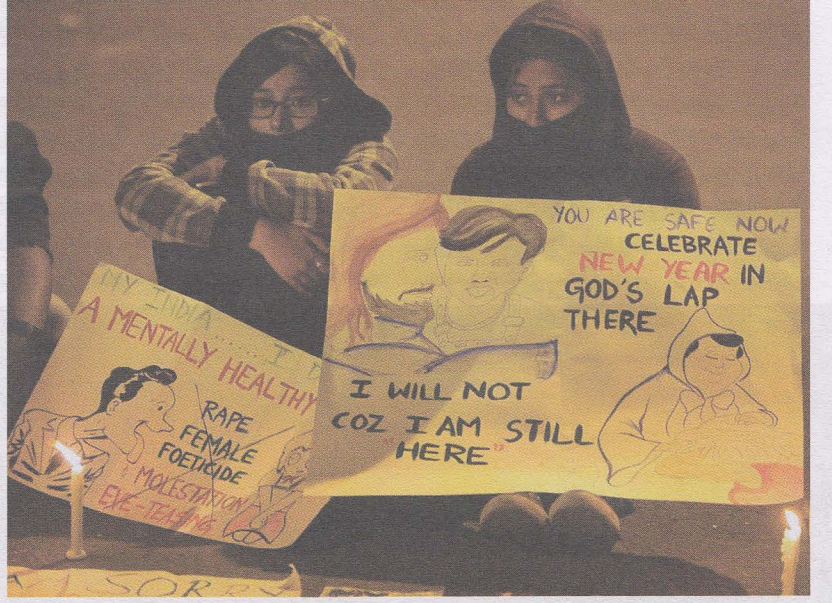 MY INDIA.......I
A MENTALLY HEALTHY
RAPE
FEMALE
FOETICIDE
MOLESTATION
EVE-TEASING
YOU ARE SAFE NOW
CELEBRATE
NEW YEAR IN
GOD'S LAP
THERE
I WILL NOT
COZ I AM STILL
"HERE"
SORRY